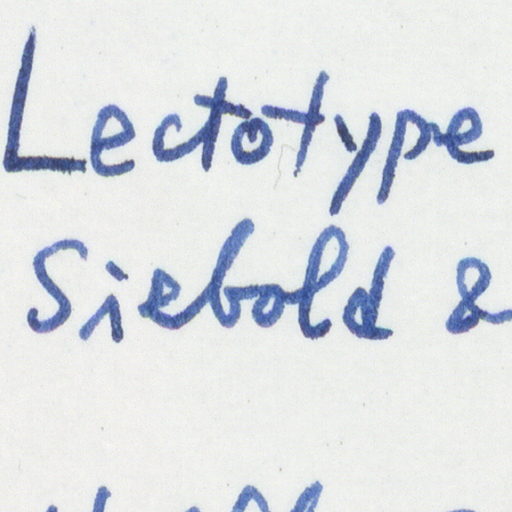 Lectotype
Siebold &